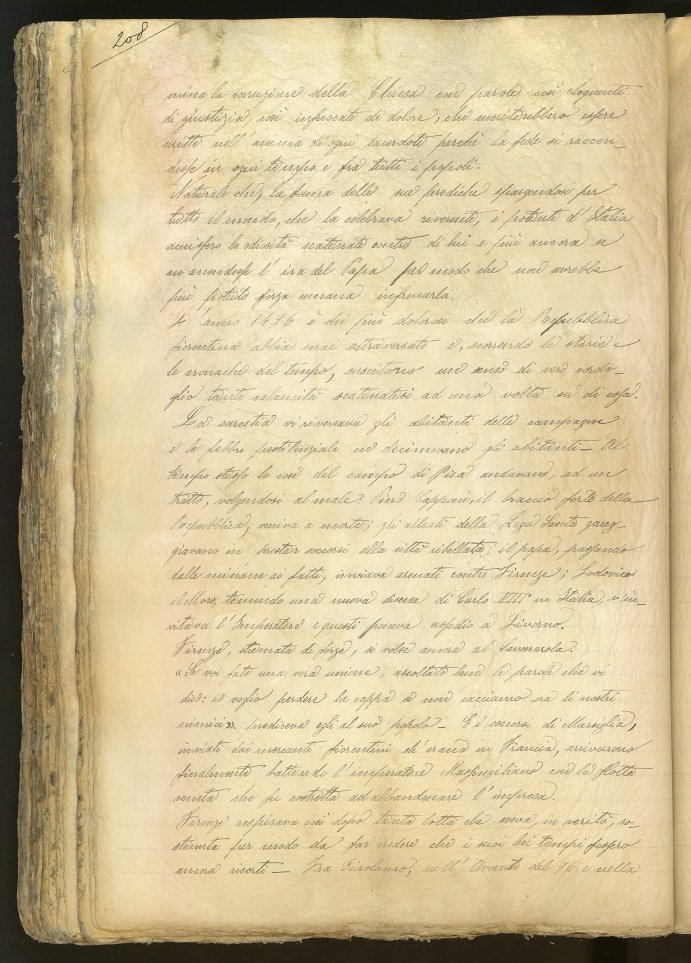 208
mina la corruzione della Chiesa con parole così eloquenti
di giustizia, così infuocate di dolore, che meriterebbero essere
scritte nell'anima di ogni sacerdote perchè la fede si raccen-
desse in ogni tempo e fra tutti i popoli.
Naturale che, la fama delle sue prediche spargendosi per
tutto il mondo, che la celebrava riverente, i potenti d'Italia
le odiosità scatenate contro di lui e più ancora se
ne accendesse l'ira del Papa per modo che non avrebbe
più potuto forza umana infrenarla.
L'anno 1496 è dei più dolorosi che la Repubblica
fiorentina abbia mai attraversato e, scorrendo le storie e
le cronache del tempo, suscitano un senso di vero cordo-
glio tante calamità scatenatesi ad una volta su di essa.
La carestia vi riversava gli abitanti delle campagne
e le febbri pestilenziali ne decimavano gli abitanti - Al
tempo stesso le cose del campo di Pisa andavano, ad un
tratto, volgendosi al male: Piero Capponi, il braccio forte della
Repubblica, veniva a morte; gli alleati della Lega Santa gareg-
giavano in prestar soccorsi alla città ribellata; il papa, passando
dalle minacce ai fatti, inviava armati contro Firenze; Lodovico
il Moro, temendo una nuova discesa di Carlo VIII in Italia, v'in-
vitava l'Imperatore e questi poneva assedio a Livorno.
Firenze, stremata di forze, si volse ancora al Savonarola.
«Se voi fate una vera unione, ascoltate bene le parole che vi
dico: io voglio perdere la cappa se non cacciamo via li nostri
nimici» prediceva egli al suo popolo - E i soccorsi di Marsiglia,
inviati dai mercanti fiorentini ch'erano in Francia, arrivarono
finalmente battendo l'imperatore Massimiliano con la flotta
veneta che fu costretta ad abbandonare l'impresa.
Firenze respirava così dopo tanta lotta che aveva, in verità, so-
stenuta per modo da far credere che i suoi bei tempi fossero
ancora risorti - Fra Girolamo, nell'Avvento del 96 e nella